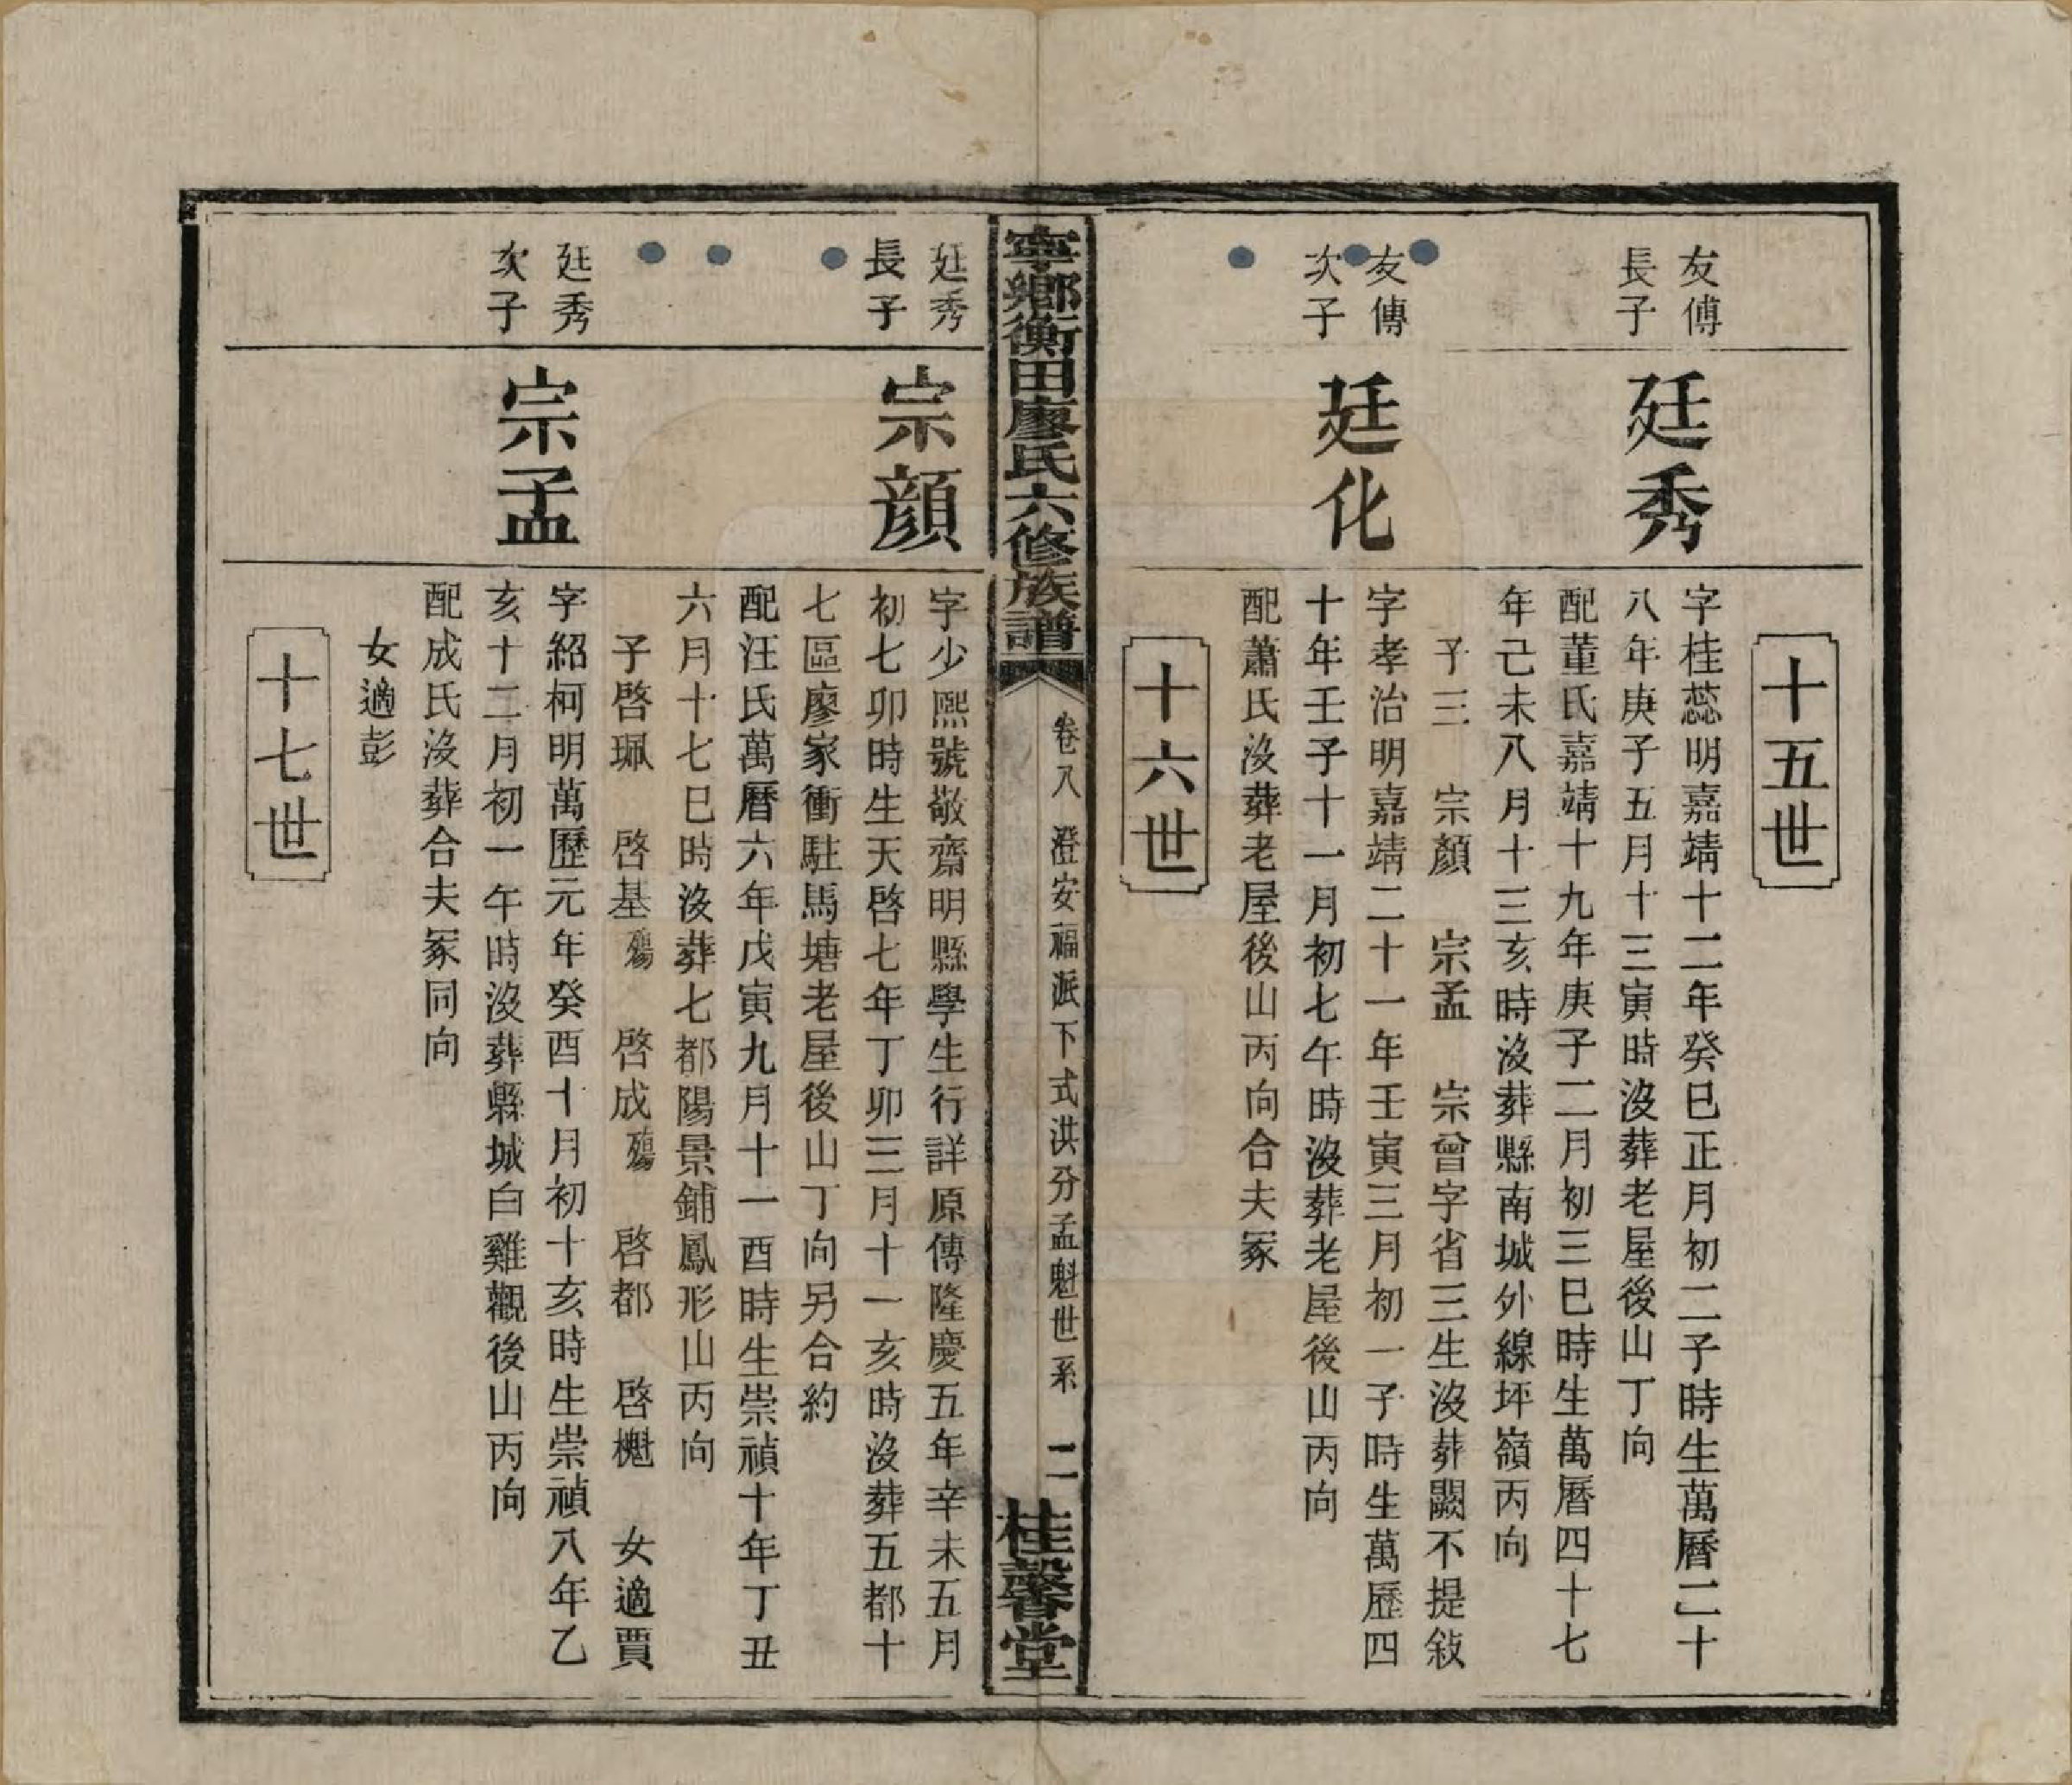 十五世
友傅
長子
廷秀
字桂蕊明嘉靖十二年癸巳正月初二子時生萬曆二十
八年庚子五月十三寅時沒葬老屋後山丁向
配董氏嘉靖十九年庚子二月初三巳時生萬曆四十七
年己未八月十三亥時沒葬縣南城外線坪嶺丙向
子三　宗顏　宗孟　宗曾字省三生沒葬闕不提敍
友傅
次子
廷化
字孝治明嘉靖二十一年壬寅三月初一子時生萬歷四
十年壬子十一月初七午時沒葬老屋後山丙向
配蕭氏沒葬老屋後山丙向合夫冢
十六世
寧鄉衡田廖氏六修族譜
卷八　澄安福派下式洪分孟魁世系　二
桂馨堂
廷秀
長子
宗顏
字少熙號敬齋明縣學生行詳原傳隆慶五年辛未五月
初七卯時生天啓七年丁卯三月十一亥時沒葬五都十
七區廖家衝駐馬塘老屋後山丁向另合約
配汪氏萬曆六年戊寅九月十一酉時生崇禎十年丁丑
六月十七巳時沒葬七都陽景鋪鳳形山丙向
子啓珮　啓基殤　啓成殤　啓都　啓樾　女適賈
廷秀
次子
宗孟
字紹柯明萬歷元年癸酉十月初十亥時生崇禎八年乙
亥十二月初一午時沒葬縣城白雞觀後山丙向
配成氏沒葬合夫冢同向
女適彭
十七世